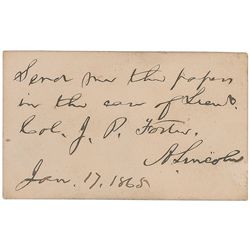 Send me the papers
in the case of Lieut.
Col. J. P. Foster.
A. Lincoln
Jan. 17, 1865